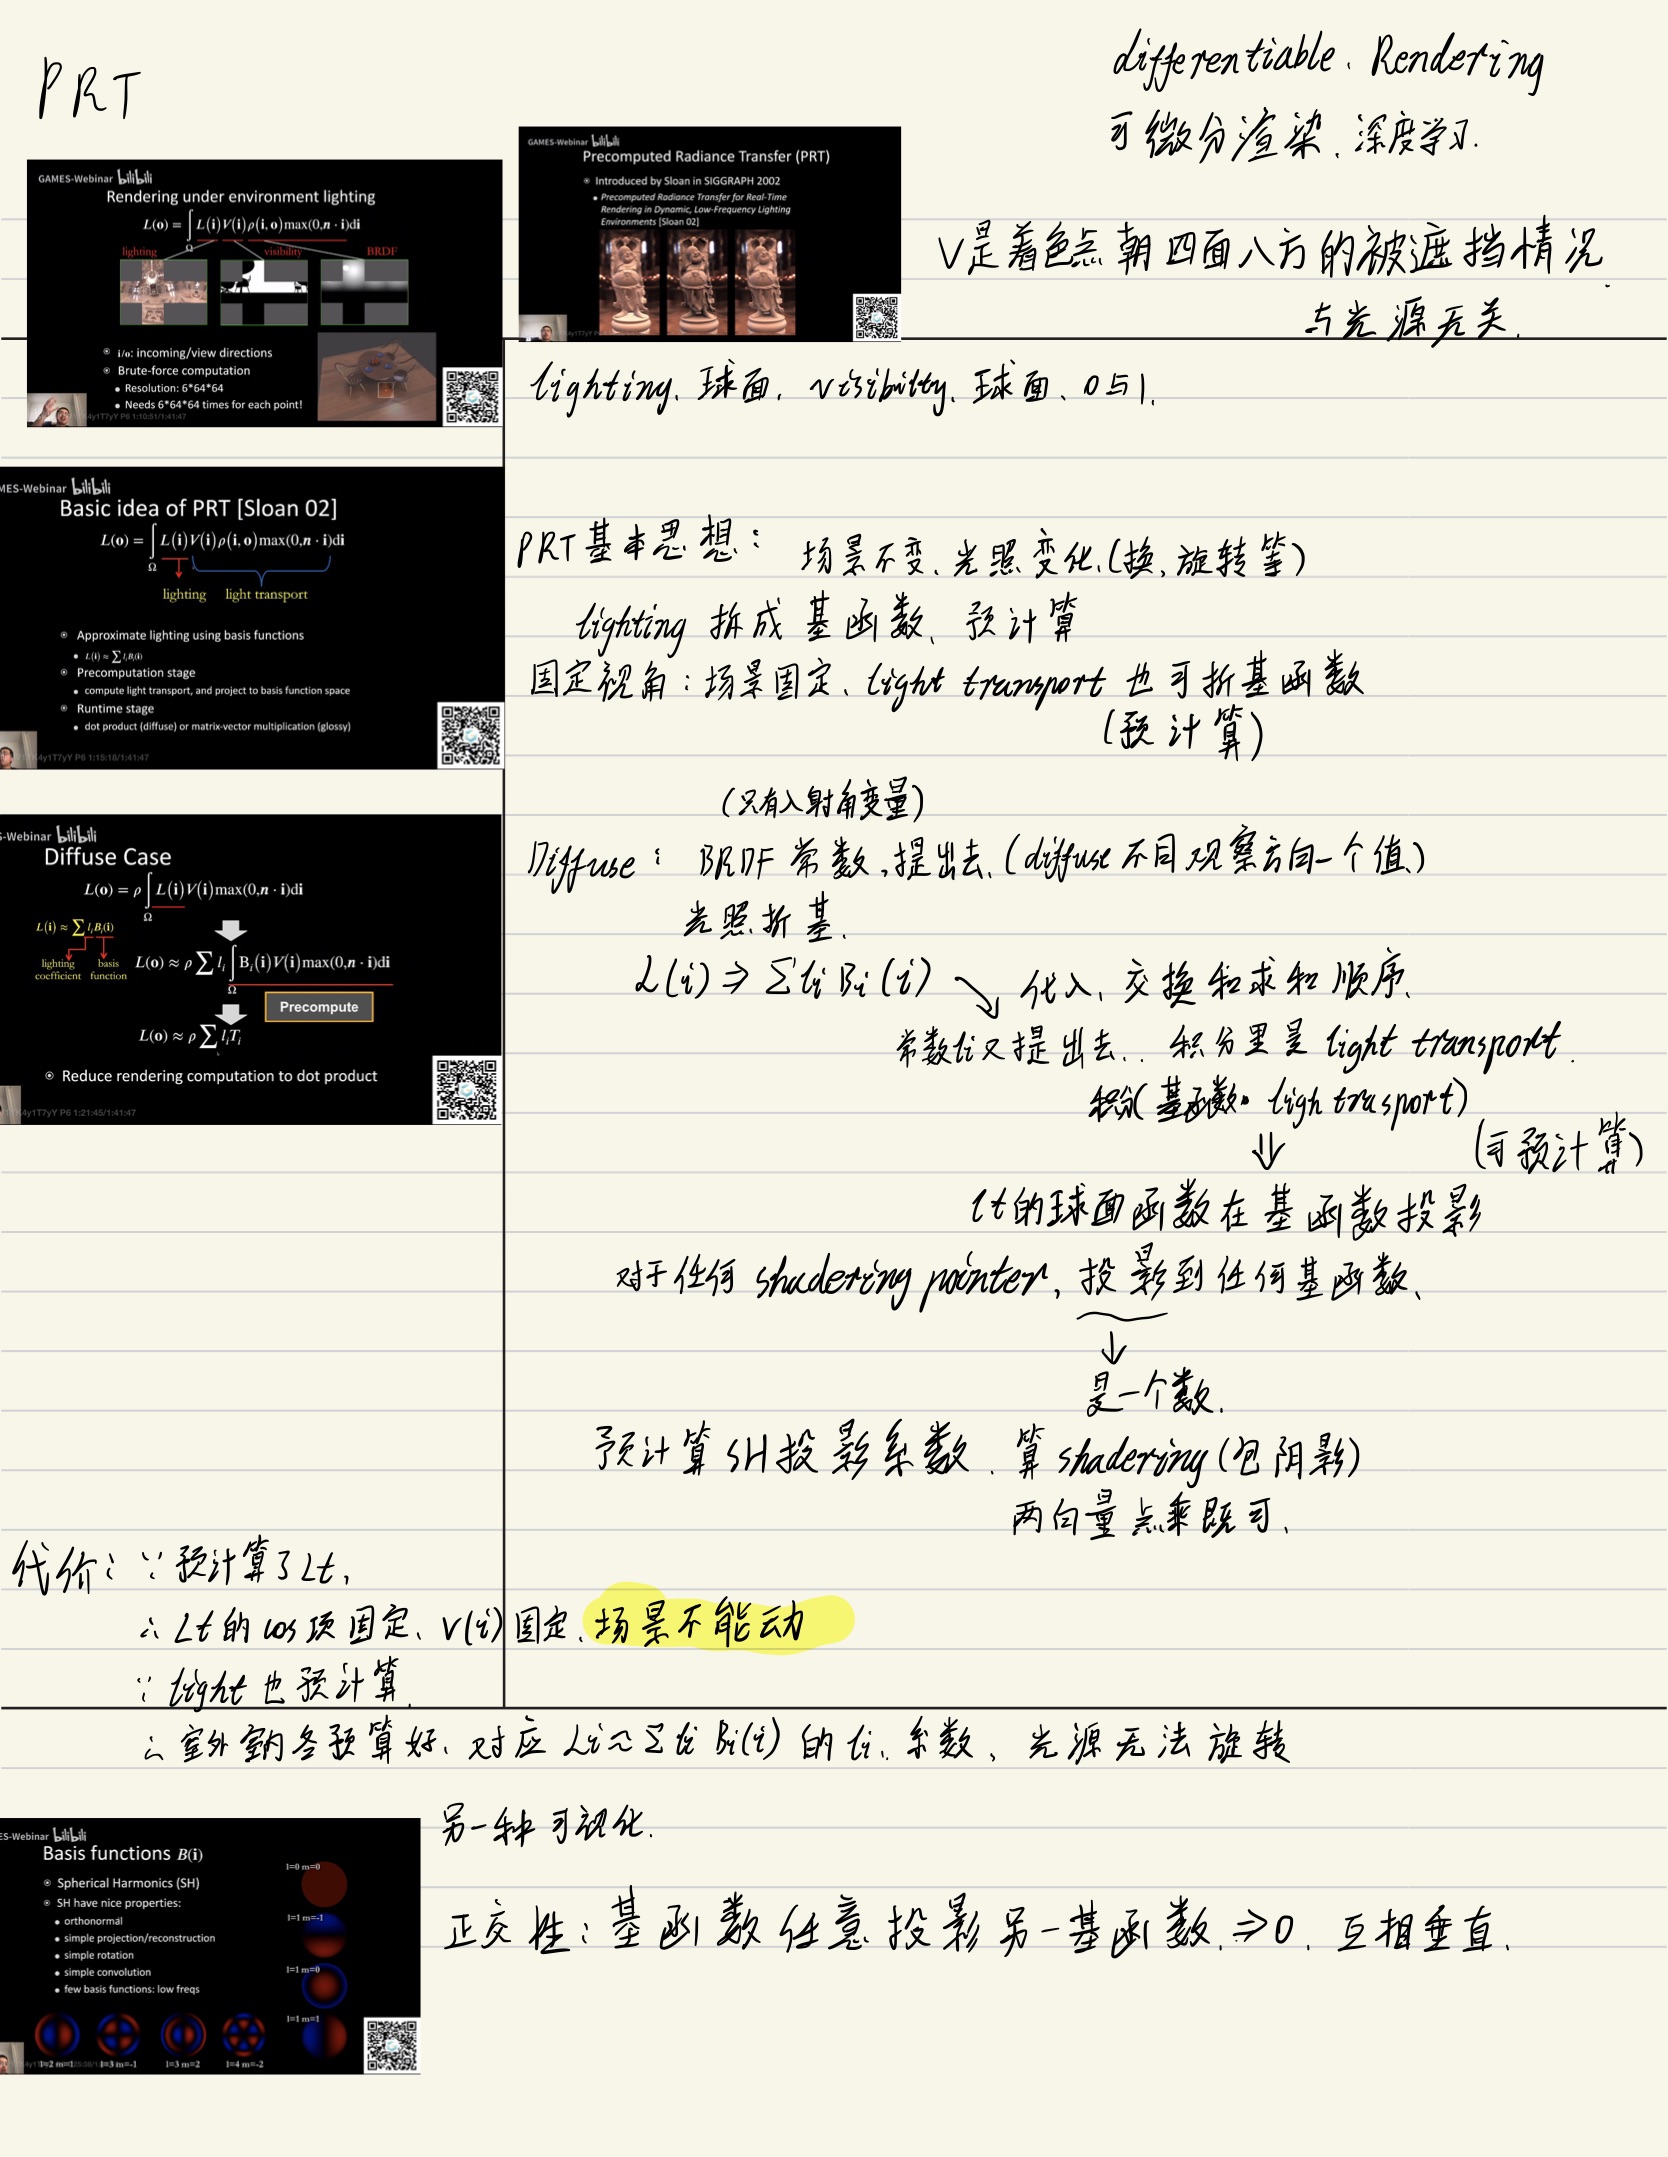 PRT
differentiable、Rendering
可微分渲染、深度学习.
GAMES-Webinar bilibili
Rendering under environment lighting
L(o) = ∫Ω L(i)V(i)ρ(i, o)max(0, n · i)di
lighting visibility BRDF
i/o: incoming/view directions
Brute-force computation
Resolution: 6*64*64
Needs 6*64*64 times for each point!
4y1T7yY P6 1:10:51/1:41:47
GAMES-Webinar bilibili
Precomputed Radiance Transfer (PRT)
Introduced by Sloan in SIGGRAPH 2002
Precomputed Radiance Transfer for Real-Time
Rendering in Dynamic, Low-Frequency Lighting
Environments [Sloan 02]
V是着色点朝四面八方的被遮挡情况
与光源无关.
lighting、球面, visibility、球面、0与1.
MES-Webinar bilibili
Basic idea of PRT [Sloan 02]
L(o) = ∫Ω L(i)V(i)ρ(i, o)max(0, n · i)di
lighting light transport
Approximate lighting using basis functions
L(i) ≈ ∑ liBi(i)
Precomputation stage
compute light transport, and project to basis function space
Runtime stage
dot product (diffuse) or matrix-vector multiplication (glossy)
K4y1T7yY P6 1:15:18/1:41:47
PRT基本思想: 场景不变、光照变化、(换、旋转等)
lighting 拆成基函数、预计算
固定视角: 场景固定、light transport 也可折基函数
(预计算)
S-Webinar bilibili
Diffuse Case
L(o) = ρ∫Ω L(i)V(i)max(0, n · i)di
L(i) ≈ ∑ liBi(i)
lighting coefficient basis function
L(o) ≈ ρ∑ li ∫Ω Bi(i)V(i)max(0, n · i)di
Precompute
L(o) ≈ ρ∑ liTi
Reduce rendering computation to dot product
K4y1T7yY P6 1:21:45/1:41:47
(只有入射角变量)
Diffuse: BRDF 常数,提出去、(diffuse 不同观察方向一个值)
光照折基.
L(i) ⇒ Σ li Bi(i) ↘ 代入、交换和求和顺序、
常数li又提出去.. 积分里是 light transport.
积分(基函数• ligh trasport)
⇓ (可预计算)
lt的球面函数在基函数投影
对于任何 shadering pointer, 投影到任何基函数、
↓
是一个数.
预计算SH投影系数、算 shadering(包阴影)
两向量点乘既可.
代价: ∵ 预计算了Lt,
∴ Lt 的 cos 项固定、V(i)固定、场景不能动
∵ light 也预计算.
∴ 室外室内各预算好、对应 Li≈Σ li Bi(i) 的 li、系数、光源无法旋转
ES-Webinar bilibili
Basis functions B(i)
Spherical Harmonics (SH)
SH have nice properties:
orthonormal
simple projection/reconstruction
simple rotation
simple convolution
few basis functions: low freqs
l=0 m=0
l=1 m=-1
l=1 m=0
l=1 m=1
l=2 m=1 l=3 m=-1 l=3 m=2 l=4 m=-2
另一种可视化.
正交性: 基函数任意投影另一基函数、⇒0、互相垂直.